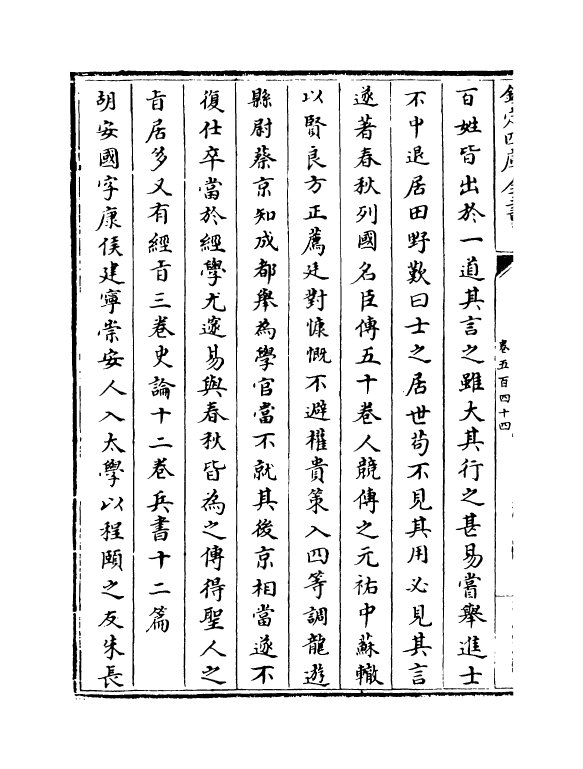 欽定四庫全書
卷五百四十四
百姓皆出於一道其言之雖大其行之甚易嘗舉進士
不中退居田野歎曰士之居世茍不見其用必見其言
遂著春秋列國名臣傳五十卷人競傳之元祐中蘇轍
以賢良方正薦廷對慷慨不避權貴策入四等調龍遊
縣尉蔡京知成都舉為學官當不就其後京相當遂不
復仕卒當於經學尤邃易與春秋皆為之傳得聖人之
㫖居多又有經㫖三卷史論十二卷兵書十二篇
胡安國字康侯建寧崇安人入太學以程頤之友朱長